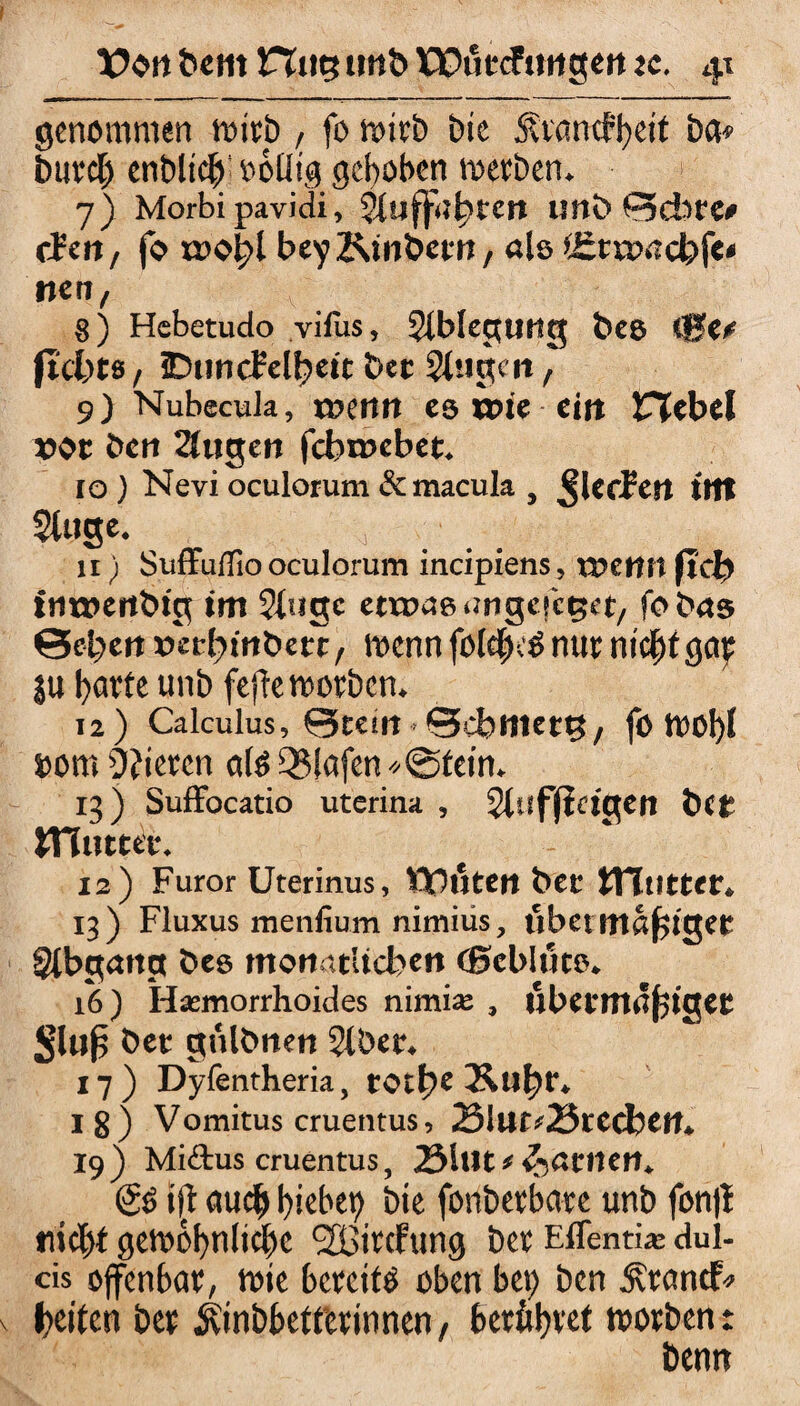 Von dem Nutz und Würckungen ꝛc. 41
genommen wird, so wird die Kranckheit da-
durch endlich völlig gehoben werden.
7) Morbi pavidi, Auffahren und Schre-
cken, so wohl bey Kindern, als Erwachse-
nen,
8) Hebetudo visus, Ablegung des Ge-
sichts, Dunckelheit der Augen,
9) Nubecula, wenn es wie ein Nebel
vor den Augen schwebet.
10) Nevi oculorum & macula, Flecken im
Auge.
11) Suffussio oculorum incipiens, wenn sich
inwendig im Auge etwas angesetzet, so das
Sehen verhindert, wenn solches nur nicht gar
zu harte und feste worden.
12) Calculus, Stein-Schmertz, so wohl
vom Nieren als Blasen-Stein.
13) Suffocatio uterina, Auffsteigen der
Mutter.
12) Furor Uterinus, Wüten der Mutter.
13) Fluxus mensium nimius, übermäßiger
Abgang des monatlichen Geblüts.
16) Hæmorrhoides nimiæ, übermäßiger
Fluß der güldnen Ader.
17) Dysentheria, rothe Ruhr.
18) Vomitus cruentus, Blut-Brechen.
19) Mictus cruentus, Blut-Harnen.
Es ist auch hiebey die sonderbare und sonst
nicht gewöhnliche Wirckung der Essentiæ dul-
cis offenbar, wie bereits oben bey den Kranck-
heiten der Kindbetterinnen, berühret worden:
denn